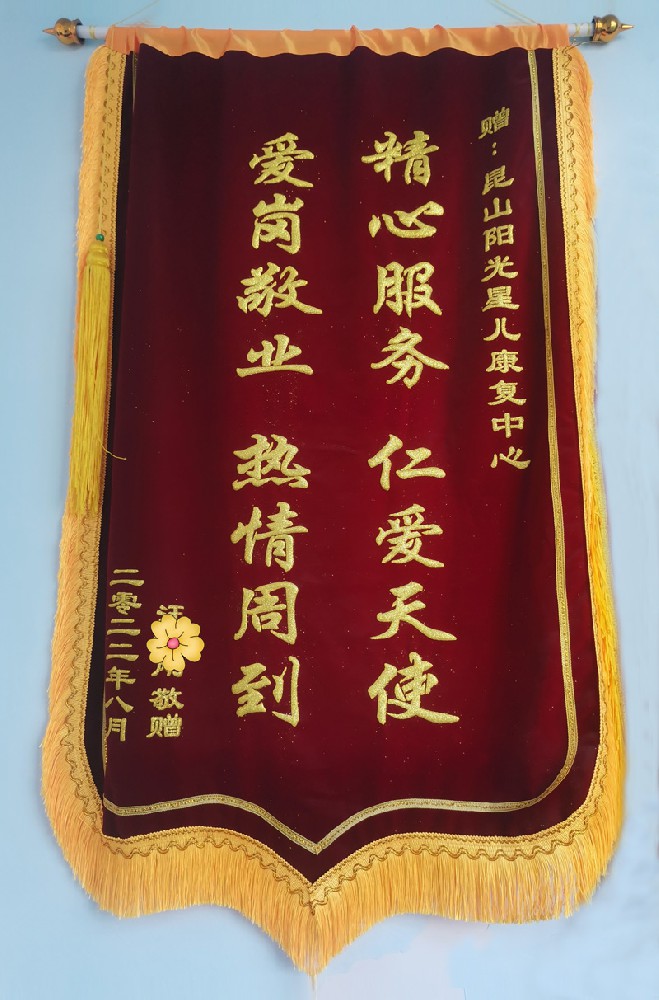 赠：昆山阳光星儿康复中心
精心服务 仁爱天使
爱岗敬业 热情周到
汪 敬赠
二零二二年八月